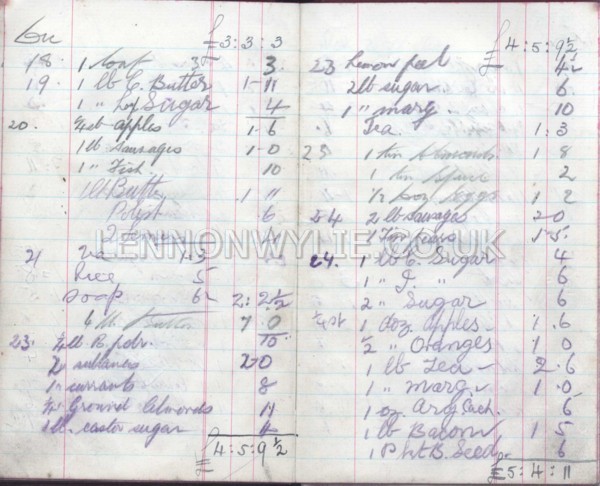 £3:3:3
18 1 loaf 3 3
19 1 lb C. Butter 1-11
1 " Sugar 4
20. ¼ st apples 1-6
1 lb Sausages 1-0
1 " Fish. 10
1 lb Butter 1 11
6
LENNONWYLIE.CO.UK
21 Tea 1.3
5
Soap 6 2:2½
7 0
23. ¼ lb B. pdr. 10
2 " sultanas 2-0
1 " currants 8
Ground Almonds 11
1 lb. castor sugar
£4:5:9½
£4:5:9½
23 Lemon peel 4½
2 lb sugar. 6
1 " marg. 10
Tea 1.3
23 1 tin Almonds 1 8
1 tin 2
½ doz Eggs 1 2
24 2 lb Sausages 2-0
1 1.5.
24. 1 lb C. Sugar 4
1 " I. " 6
2 " Sugar 6
¼ st 1 doz. Apples- 1.6
½ " Oranges 1 0
1 lb Tea- 2.6
1 " marg. 1.0
1 oz. 6
1 lb Bacon 1 5
1 Pkt B. Seed 6
£5:4:11